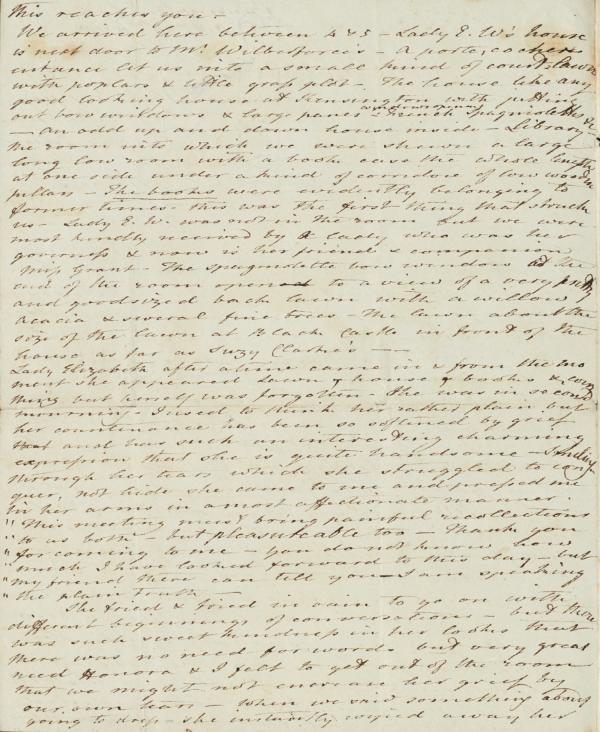 This reaches you –
We arrived here between 4 & 5 – Lady E. W's house
is next door to Mr. Wilberforce's – a porte, cochere
entrance let us into a small kind of court: lawn
with poplars & little grass plot – The house like any
good looking house at Kensington with jutting
out bow windows & large panes
window frames
French spagnolettes &c
– an odd up and down house inside – Library
the room into which we were shewn a large
long low room with a book case the whole length
at one side under a kind of corridore of low wooden
pillars – The books were evidently belonging to
former times. this was the first thing that struck
us – Lady E. W. was not in the room but we were
most kindly received by a lady who was her
governess & now is her friend & companion
Miss Grant – The spagnolette bow window at the
end of the room opened to a view of a very pretty
and goodsized back lawn with a willow
acacia & several fine trees – The lawn about the
size of the lawn at Black Castle in front of the
house as far as Suzy Clarke's – –
Lady Elizabeth after a time came in & from the mo
ment she appeared lawn, house & books & every
thing but herself was forgotten – She was in second
mourning – I used to think her rather plain but
her countenance has been so softened by grief
that and has such an interesting charming
expression that she is quite handsome – Smiling
through her tears which she struggled to con
quer, not hide she came to me and pressed me
in her arms in a most affectionate manner.
"This meeting must bring painful recollections
"to us both – but pleasureable too – Thank you
"for coming to me – you do not know how
"much I have looked forward to this day – but
"my friend there can tell you – I am speaking
"the plain truth –
She tried & tried in vain to go on with
different beginnings of conversations – but there
was such sweet kindness in her looks that
there was no need for words but very great
need Honora & I felt to get out of the room
that we might not encrease her grief by
our own tears – When we said something about
going to dress – she instantly wiped away her